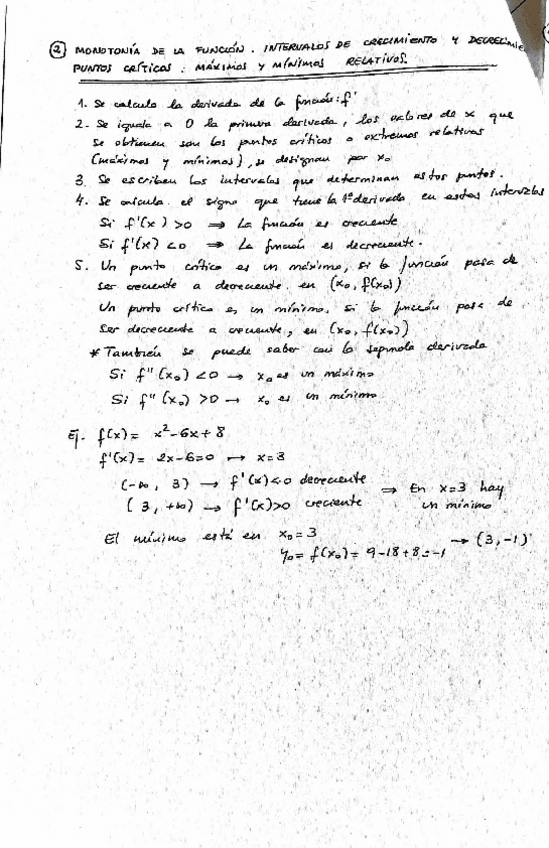 ② MONOTONÍA DE LA FUNCIÓN. INTERVALOS DE CRECIMIENTO Y DECRECIMIE
PUNTOS CRÍTICOS: MÁXIMOS Y MÍNIMOS RELATIVOS.
1. Se calcula la derivada de la función: f'
2. Se iguala a 0 la primera derivada, los valores de x que
se obtienen son los puntos críticos o extremos relativos
(máximos y mínimos), se designan por x₀
3. Se escriben los intervalos que determinan estos puntos.
4. Se calcula el signo que tiene la 1ª derivada en estos intervalos
Si f'(x) >0 ⇒ La función es creciente
Si f'(x) <0 ⇒ La función es decreciente.
5. Un punto crítico es un máximo, si la función pasa de
ser creciente a decreciente en (x₀, f(x₀))
Un punto crítico es un mínimo, si la función pasa de
ser decreciente a creciente, en (x₀, f(x₀))
* También se puede saber con la segunda derivada
Si f''(x₀) <0 → x₀ es un máximo
Si f''(x₀) >0 → x₀ es un mínimo
Ej. f(x)= x²-6x+8
f'(x)= 2x-6=0 → x=3
(-∞, 3) → f'(x)<0 decreciente
(3, +∞) → f'(x)>0 creciente
⇒ En x=3 hay
un mínimo
El mínimo está en x₀=3
y₀= f(x₀)= 9-18+8=-1
→ (3,-1)